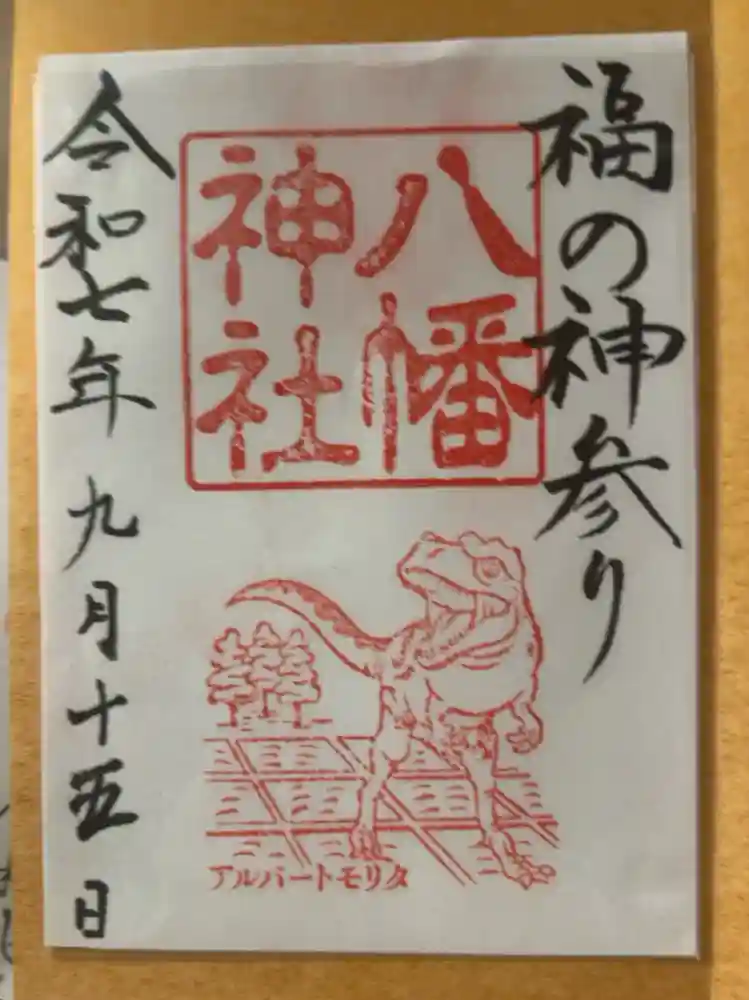 福の神参り
八幡
神社
アルバートモリタ
令和七年九月十五日